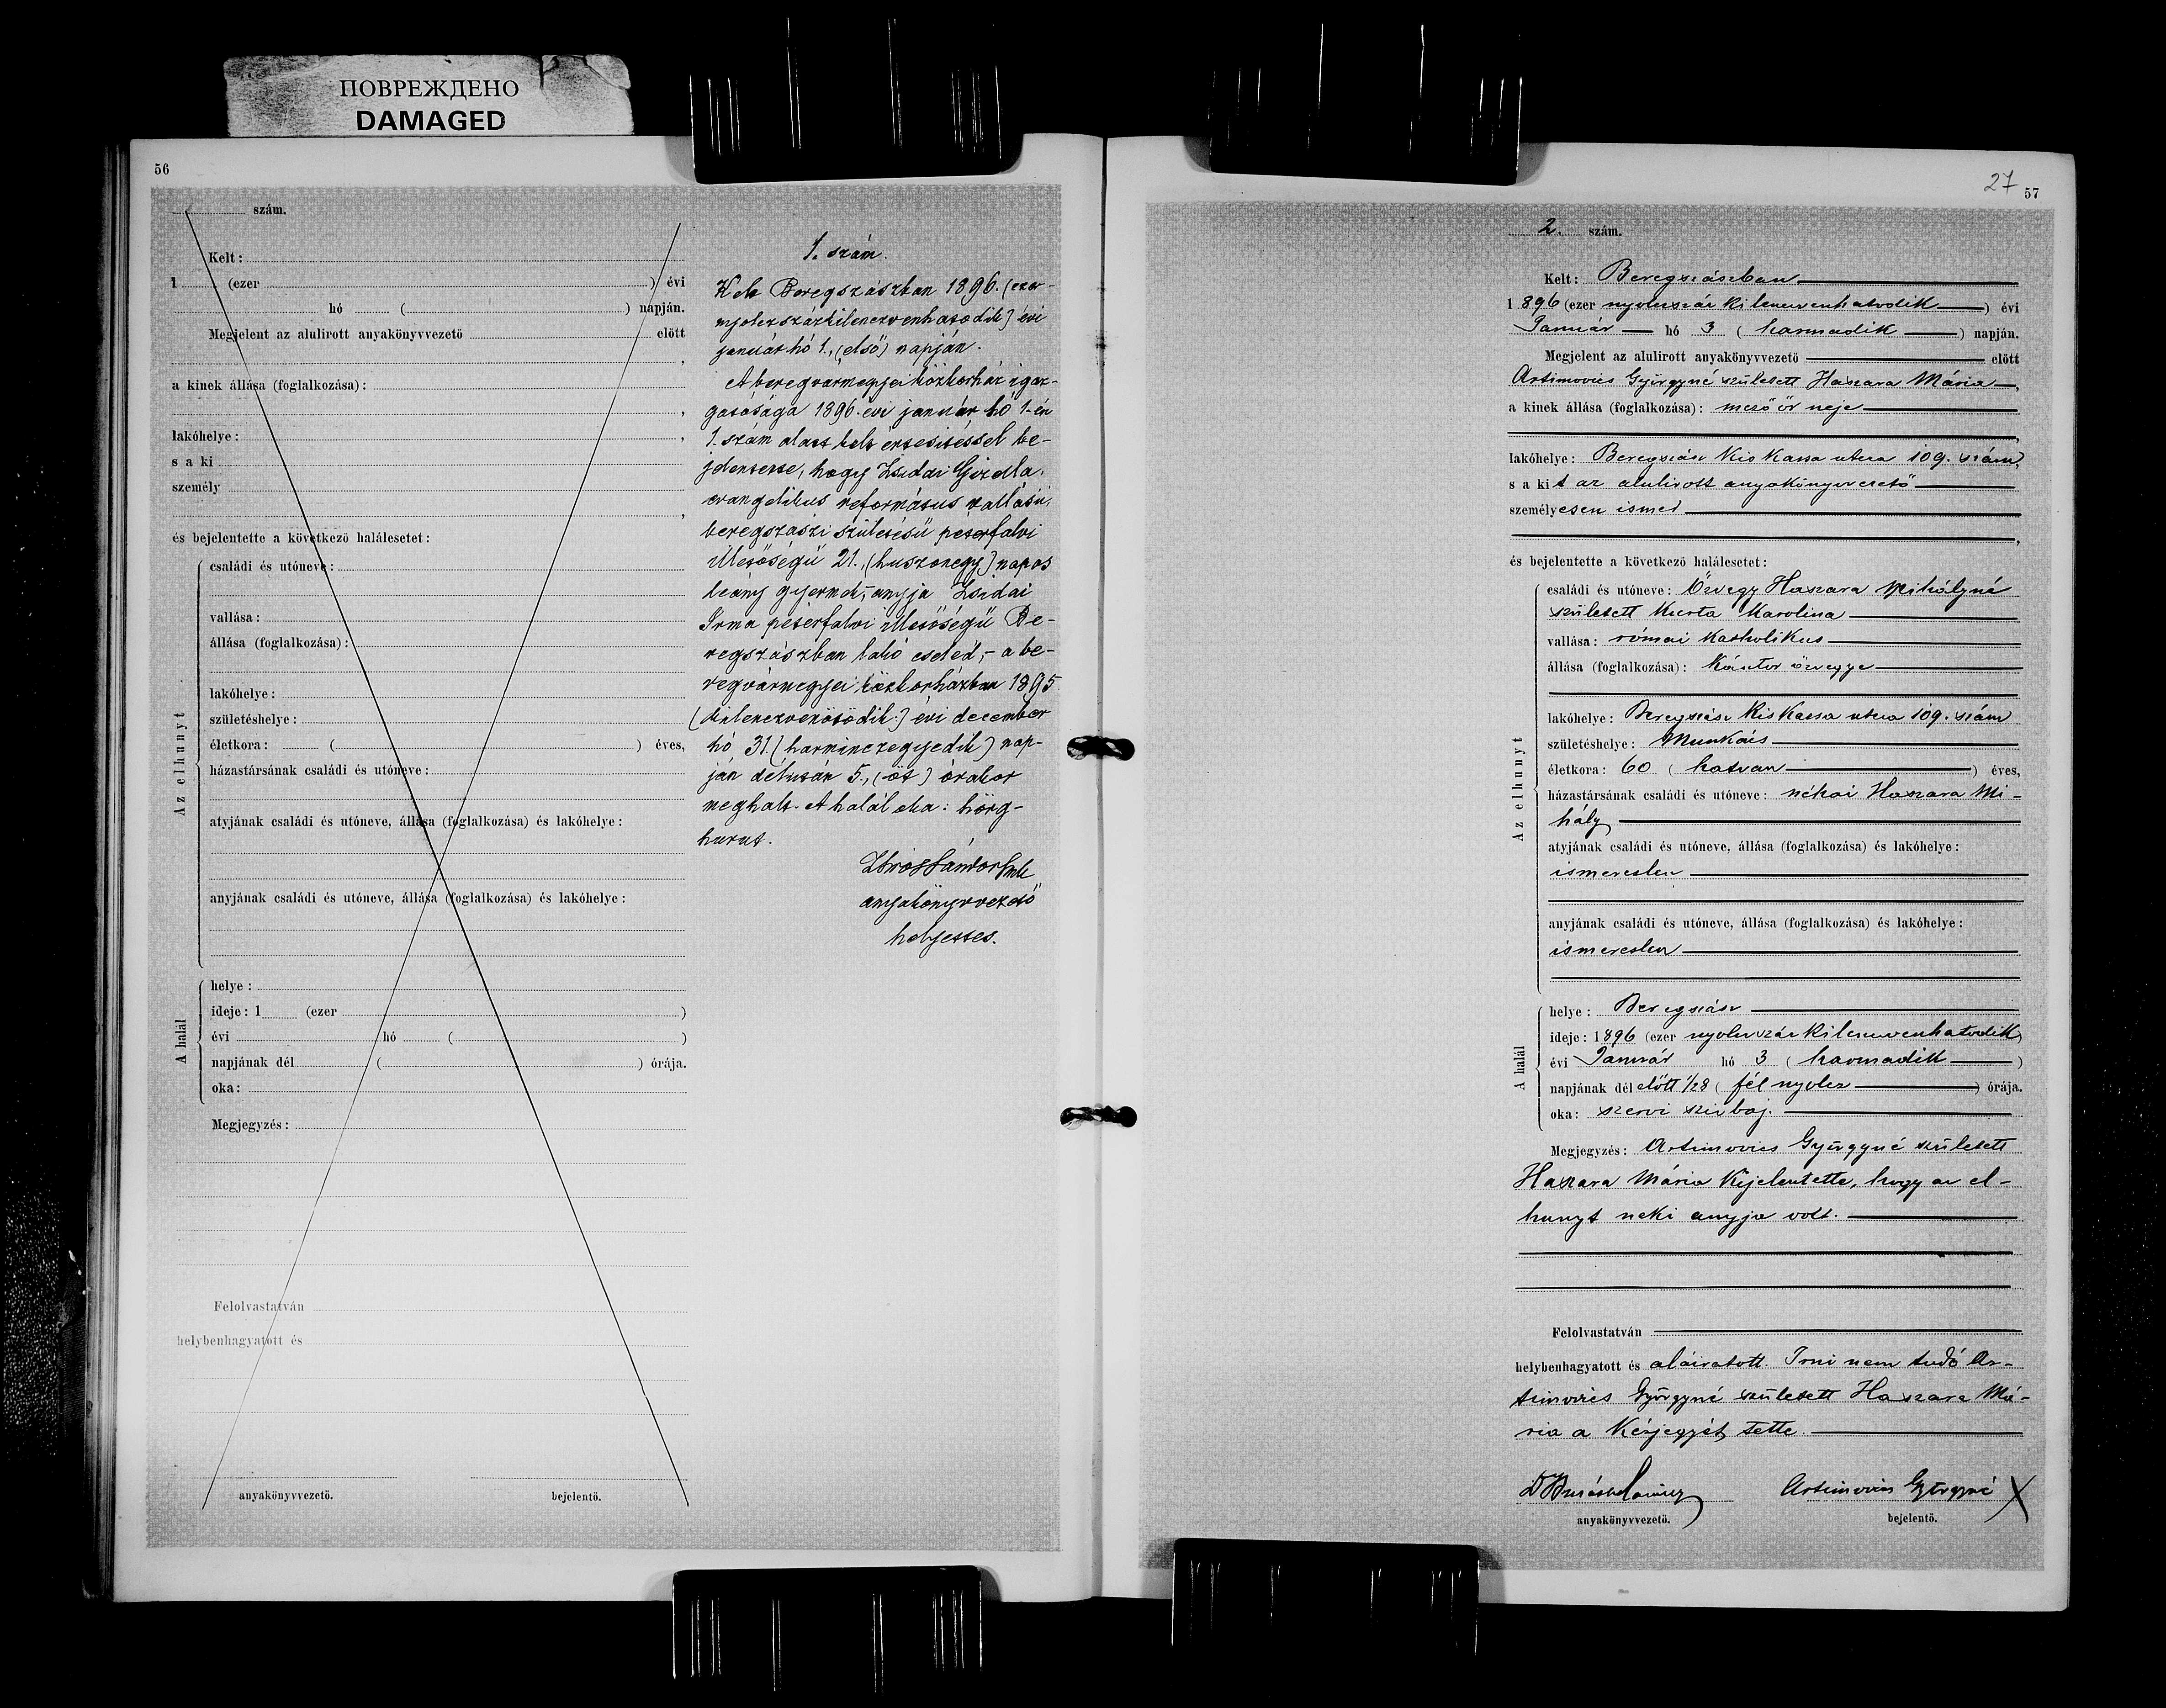 ПОВРЕЖДЕНО
DAMAGED
56
szám.
Kelt:
1 (ezer ) évi
hó ( ) napján.
Megjelent az alulirott anyakönyvvezető előtt
,
a kinek állása (foglalkozása):
,
lakóhelye: ,
s a ki
személy
,
és bejelentette a következő halálesetet:
Az elhunyt
családi és utóneve:
vallása:
állása (foglalkozása):
lakóhelye:
születéshelye:
életkora: ( ) éves,
házastársának családi és utóneve:
atyjának családi és utóneve, állása (foglalkozása) és lakóhelye:
anyjának családi és utóneve, állása (foglalkozása) és lakóhelye:
A halál
helye:
ideje: 1 (ezer )
évi hó ( )
napjának dél ( ) órája.
oka:
Megjegyzés:
Felolvastatván
helybenhagyatott és
anyakönyvvezető. bejelentő.
1. szám.
Kelt Beregszászban 1896. (ezer-
nyolczszázkilenczvenhatodik) évi
január hó 1., (első) napján.
A beregvármegyei közkorház igaz-
gatósága 1896. évi január hó 1-én
1. szám alatt kelt értesitéssel be-
jelentette, hogy Zsidai Gizella,
evangelikus református vallású,
beregszászi születésű péterfalvi
illetőségű 21., (huszonegy) napos
leány gyermek, - anyja Zsidai
Irma péterfalvi illetőségű Be-
regszászban lakó cseléd, - a be-
regvármegyei közkorházban 1895
(kilenczvenötödik) évi deczember
hó 31. (harminczegyedik) nap-
ján délután 5., (öt) órakor
meghalt. A halál oka: hörg-
hurut.
anyakönyvvezető
helyettes.
27
57
2. szám.
Kelt: Beregszászban
1896 (ezer nyolczszáz kilenczvenhatodik) évi
Január hó 3 (harmadik) napján.
Megjelent az alulirott anyakönyvvezető előtt
Artimovics Györgyné született Haszara Mária,
a kinek állása (foglalkozása): mezőőr neje
,
lakóhelye: Beregszász Kis Kassa utcza 109. szám,
s a kit az alulirott anyakönyvvezető
személyesen ismer
,
és bejelentette a következő halálesetet:
Az elhunyt
családi és utóneve: Özvegy Haszara Mihályné
született Kurta Karolina
vallása: római katholikus
állása (foglalkozása): Kántor özvegye
lakóhelye: Beregszász Kis Kassa utcza 109. szám
születéshelye: Munkács
életkora: 60 (hatvan) éves,
házastársának családi és utóneve: néhai Haszara Mi-
hály
atyjának családi és utóneve, állása (foglalkozása) és lakóhelye:
ismeretlen
anyjának családi és utóneve, állása (foglalkozása) és lakóhelye:
ismeretlen
A halál
helye: Beregszász
ideje: 1896 (ezer nyolczszáz kilenczvenhatodik)
évi Január hó 3 (harmadik)
napjának dél előtt 1/28 (fél nyolcz) órája.
oka: szervi szivbaj.
Megjegyzés: Artimovics Györgyné született
Haszara Mária Kijelentette, hogy az el-
hunyt neki anyja volt.
Felolvastatván
helybenhagyatott és aláiratott. Irni nem tudó Ar-
timovics Györgyné született Haszara Má-
ria a Kézjegyét tette
Artimovics Györgyné X
anyakönyvvezető. bejelentő.